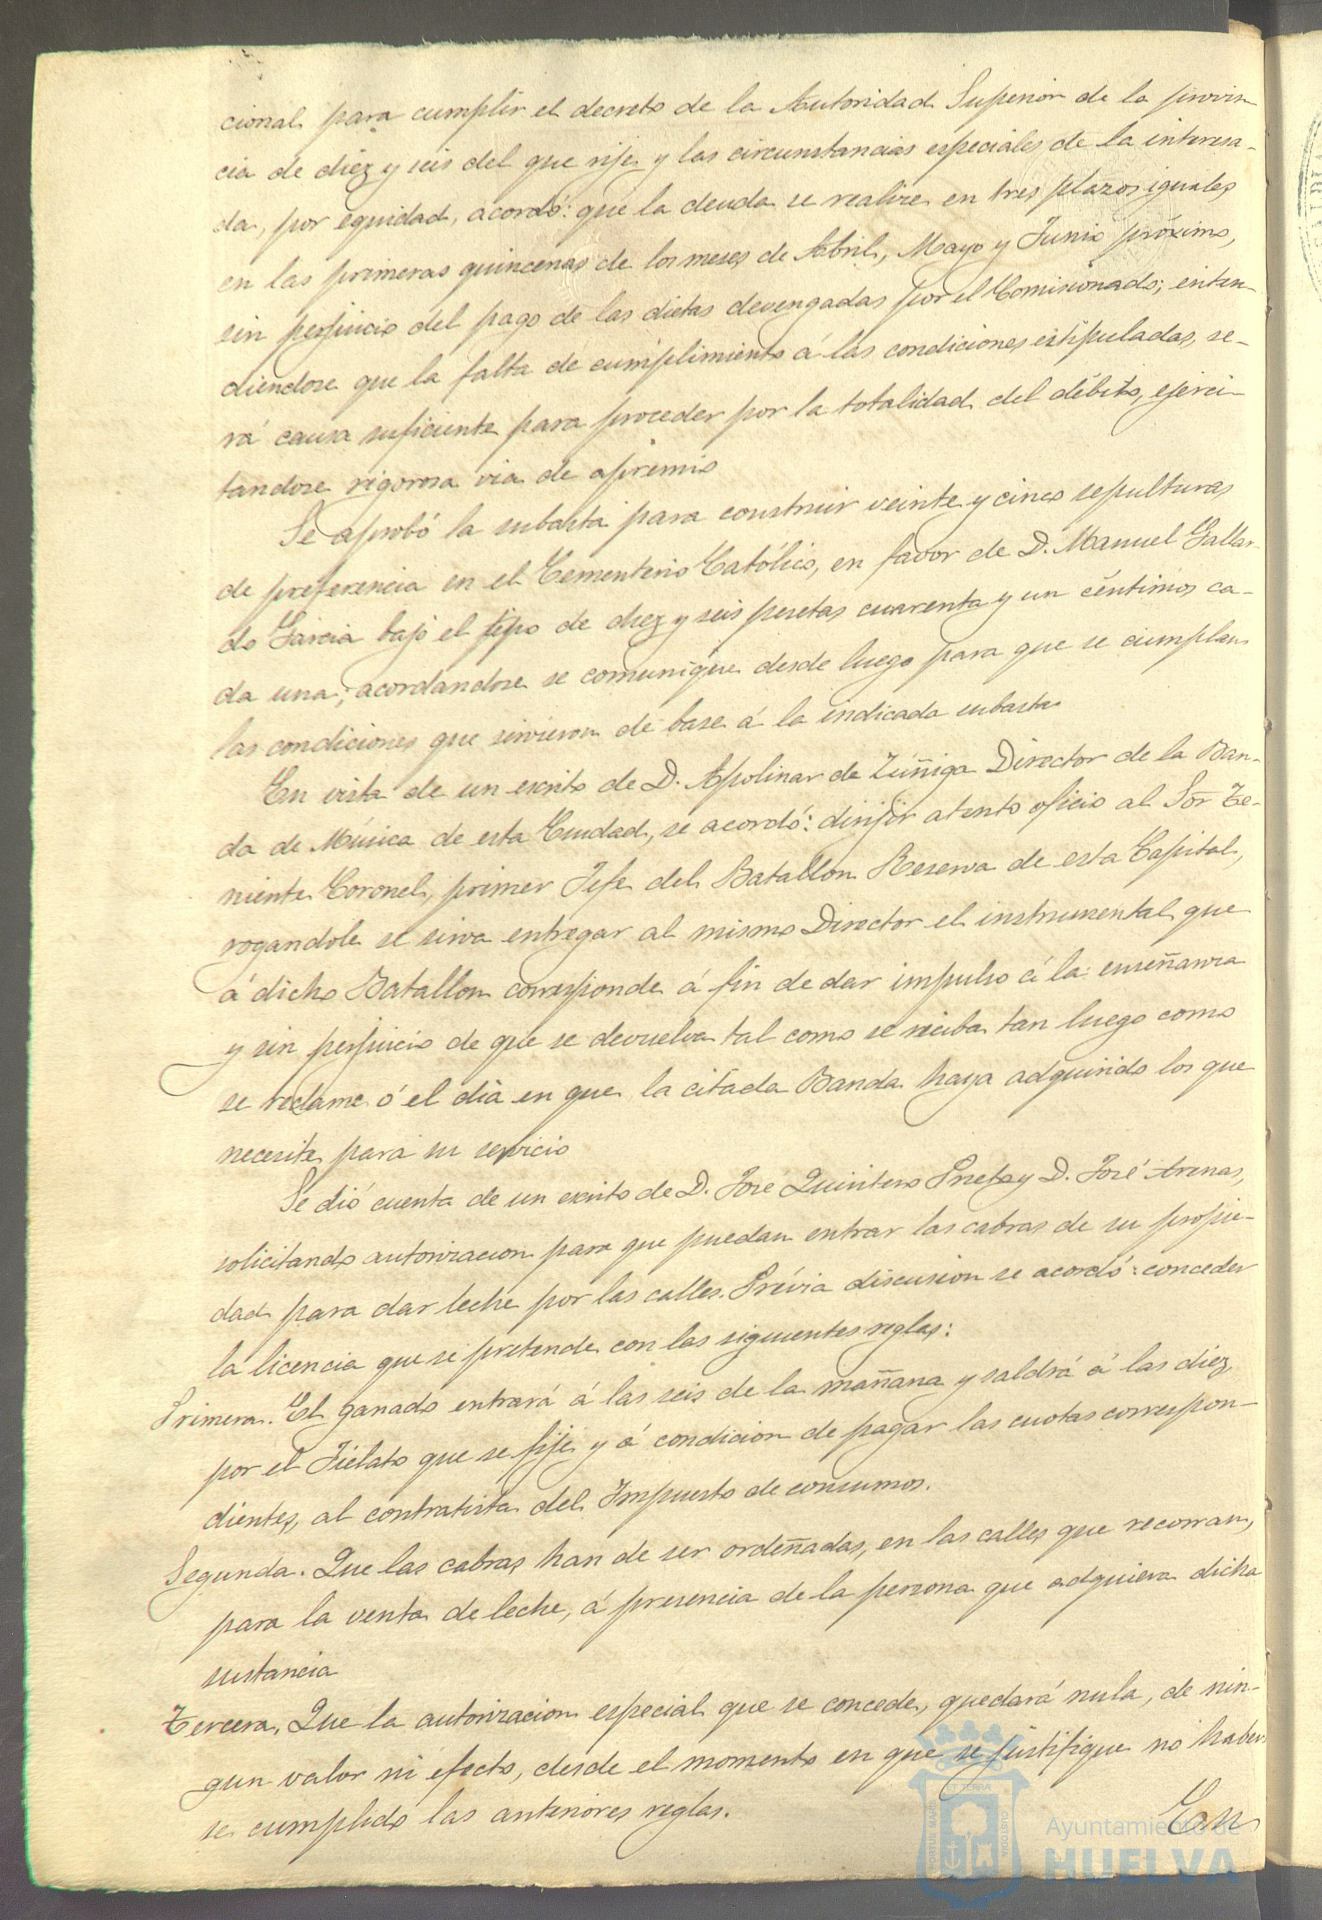 cional para cumplir el decreto de la Autoridad Superior de la provin
cia de diez y seis del que rije y las circunstancias especiales de la interesa-
da, por equidad, acordó: que la deuda se realize en tres plazos iguales,
en las primeras quincenas de los meses de Abril, Mayo y Junio próximo,
sin perjuicio del pago de las dietas devengadas por el Comisionado; enten
diendose que la falta de cumplimiento á las condiciones estipuladas, se-
rá causa suficiente para proceder por la totalidad del débito, ejerci-
tandose rigorosa via de apremio
Se aprobó la subasta para construir veinte y cinco sepulturas
de preferencia en el Cementerio Católico, en favor de D. Manuel Gallar-
do Garcia bajo el tipo de diez y seis pesetas cuarenta y un céntimos ca-
da una; acordandose se comunique desde luego para que se cumplan
las condiciones que sirvieron de base á la indicada subasta
En vista de un escrito de D. Apolinar de Zúñiga Director de la Ban-
da de Música de esta Ciudad, se acordó: dirijir atento oficio al Sor Te-
niente Coronel, primer Jefe del Batallon Reserva de esta Capital,
rogandole se sirva entregar al mismo Director el instrumental que
á dicho Batallon corresponde á fin de dar impulso á la enseñanza
y sin perjuicio de que se devuelva tal como se reciba tan luego como
se reclame ó el dia en que la citada Banda haya adquirido los que
necesite para su servicio
Se dió cuenta de un escrito de D. José Quintero Prieto y D. José Arenas,
solicitando autorizacion para que puedan entrar las cabras de su propie-
dad para dar leche por las calles. Prévia discusion se acordó: conceder
la licencia que se pretende con las siguientes reglas:
Primera. El ganado entrará á las seis de la mañana y saldrá á las diez
por el Fielato que se fije y á condicion de pagar las cuotas correspon-
dientes, al contratista del Impuesto de consumos.
Segunda. Que las cabras han de ser ordeñadas, en las calles que recorran,
para la venta de leche, á presencia de la persona que adquiera dicha
sustancia
Tercera, Que la autorizacion especial que se concede, quedará nula, de nin-
gun valor ni efecto, desde el momento en que se justifique no haber
se cumplido las anteriores reglas.
En
Ayuntamiento de
HUELVA